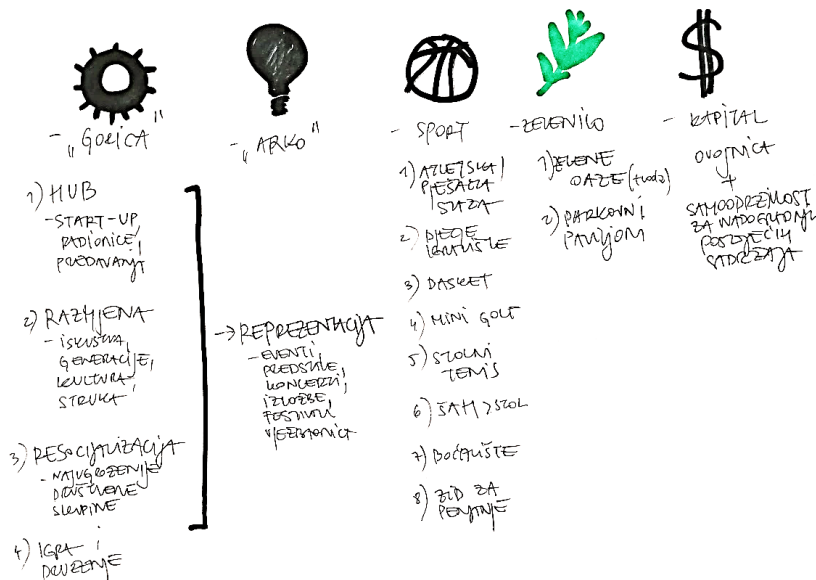 - „GORICA"
1) HUB
- START-UP
RADIONICE,
PREDAVANJA
2) RAZMJENA
- ISKUSTVA,
GENERACIJE,
KULTURA,
STRUKA
3) RESOCIJALIZACIJA
- NAJUGROŽENIJE
DRUŠTVENE
SKUPINE
4) IGRA I
DRUŽENJE
- „ARKO"
→ REPREZENTACIJA
- EVENTI,
PREDSTAVE,
KONCERTI,
IZLOŽBE,
FESTIVALI
VJEŽBAONICA
- SPORT
1) ATLETSKA /
PJEŠAČKA
STAZA
2) DJEČJE
IGRALIŠTE
3) BASKET
4) MINI GOLF
5) STOLNI
TENIS
6) ŠAH > STOL
7) BOĆALIŠTE
8) ZID ZA
PENJANJE
- ZELENILO
1) ZELENE
OAZE (+voda)
2) PARKOVNI
PAVILJONI
- KAPITAL
OVOJNICA
+
SAMOODRŽIVOST
ZA NADOGRADNJU
POSTOJEĆIH
SADRŽAJA